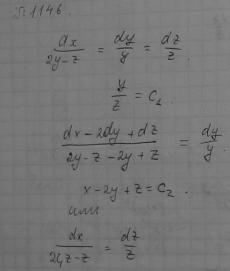 №1146.
dx/(2y-z) = dy/y = dz/z.
y/z = C₁.
(dx-2dy+dz)/(2y-z-2y+z) = dy/y.
x-2y+z = C₂.
или
dx/(2C₁z-z) = dz/z